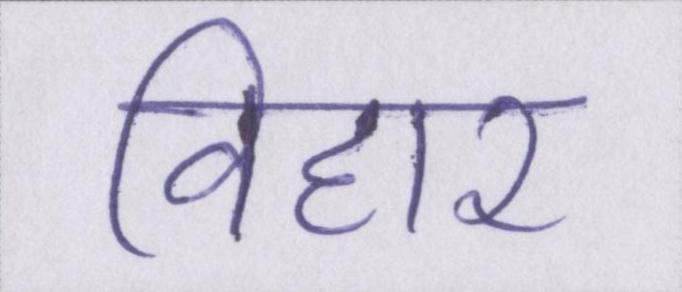 विहार